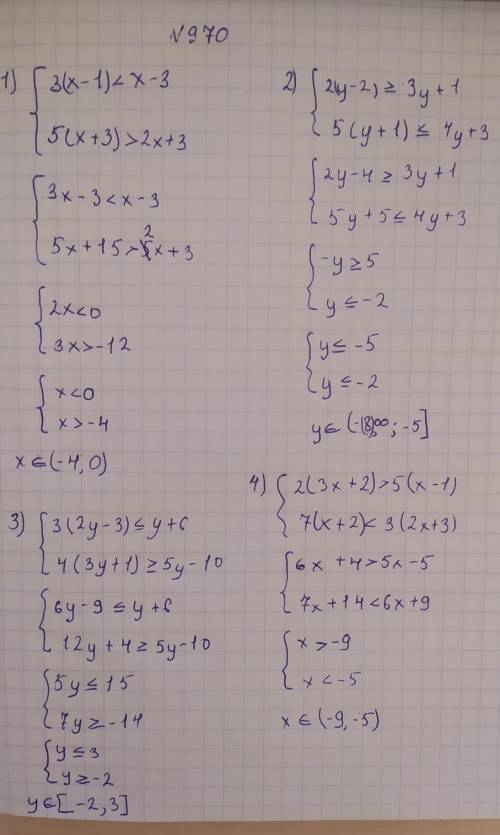 №970
1) { 3(x-1) < x-3
5(x+3) > 2x+3
{ 3x-3 < x-3
5x+15 > 2x+3
{ 2x<0
3x>-12
{ x<0
x>-4
x∈(-4,0)
2) { 2(y-2) ≥ 3y+1
5(y+1) ≤ 4y+3
{ 2y-4 ≥ 3y+1
5y+5 ≤ 4y+3
{ -y ≥ 5
y ≤ -2
{ y ≤ -5
y ≤ -2
y∈(-∞; -5]
3) { 3(2y-3) ≤ y+6
4(3y+1) ≥ 5y-10
{ 6y-9 ≤ y+6
12y+4 ≥ 5y-10
{ 5y ≤ 15
7y ≥ -14
{ y ≤ 3
y ≥ -2
y∈[-2,3]
4) { 2(3x+2) > 5(x-1)
7(x+2) < 3(2x+3)
{ 6x+4 > 5x-5
7x+14 < 6x+9
{ x > -9
x < -5
x∈(-9,-5)